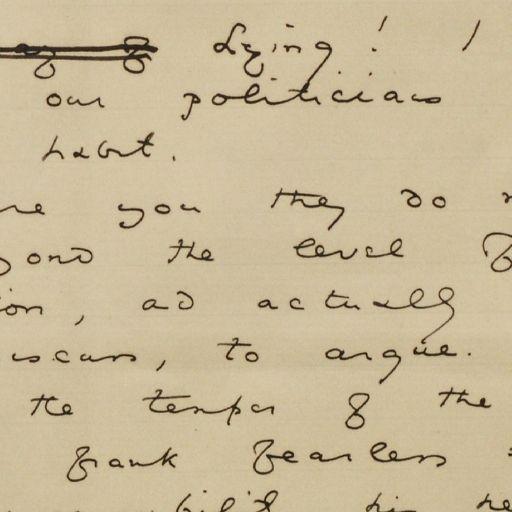 Lying! I
our politicians
habit.
you they do
the level
, ad actually
, to argue.
the temper of the
frank fearless
his